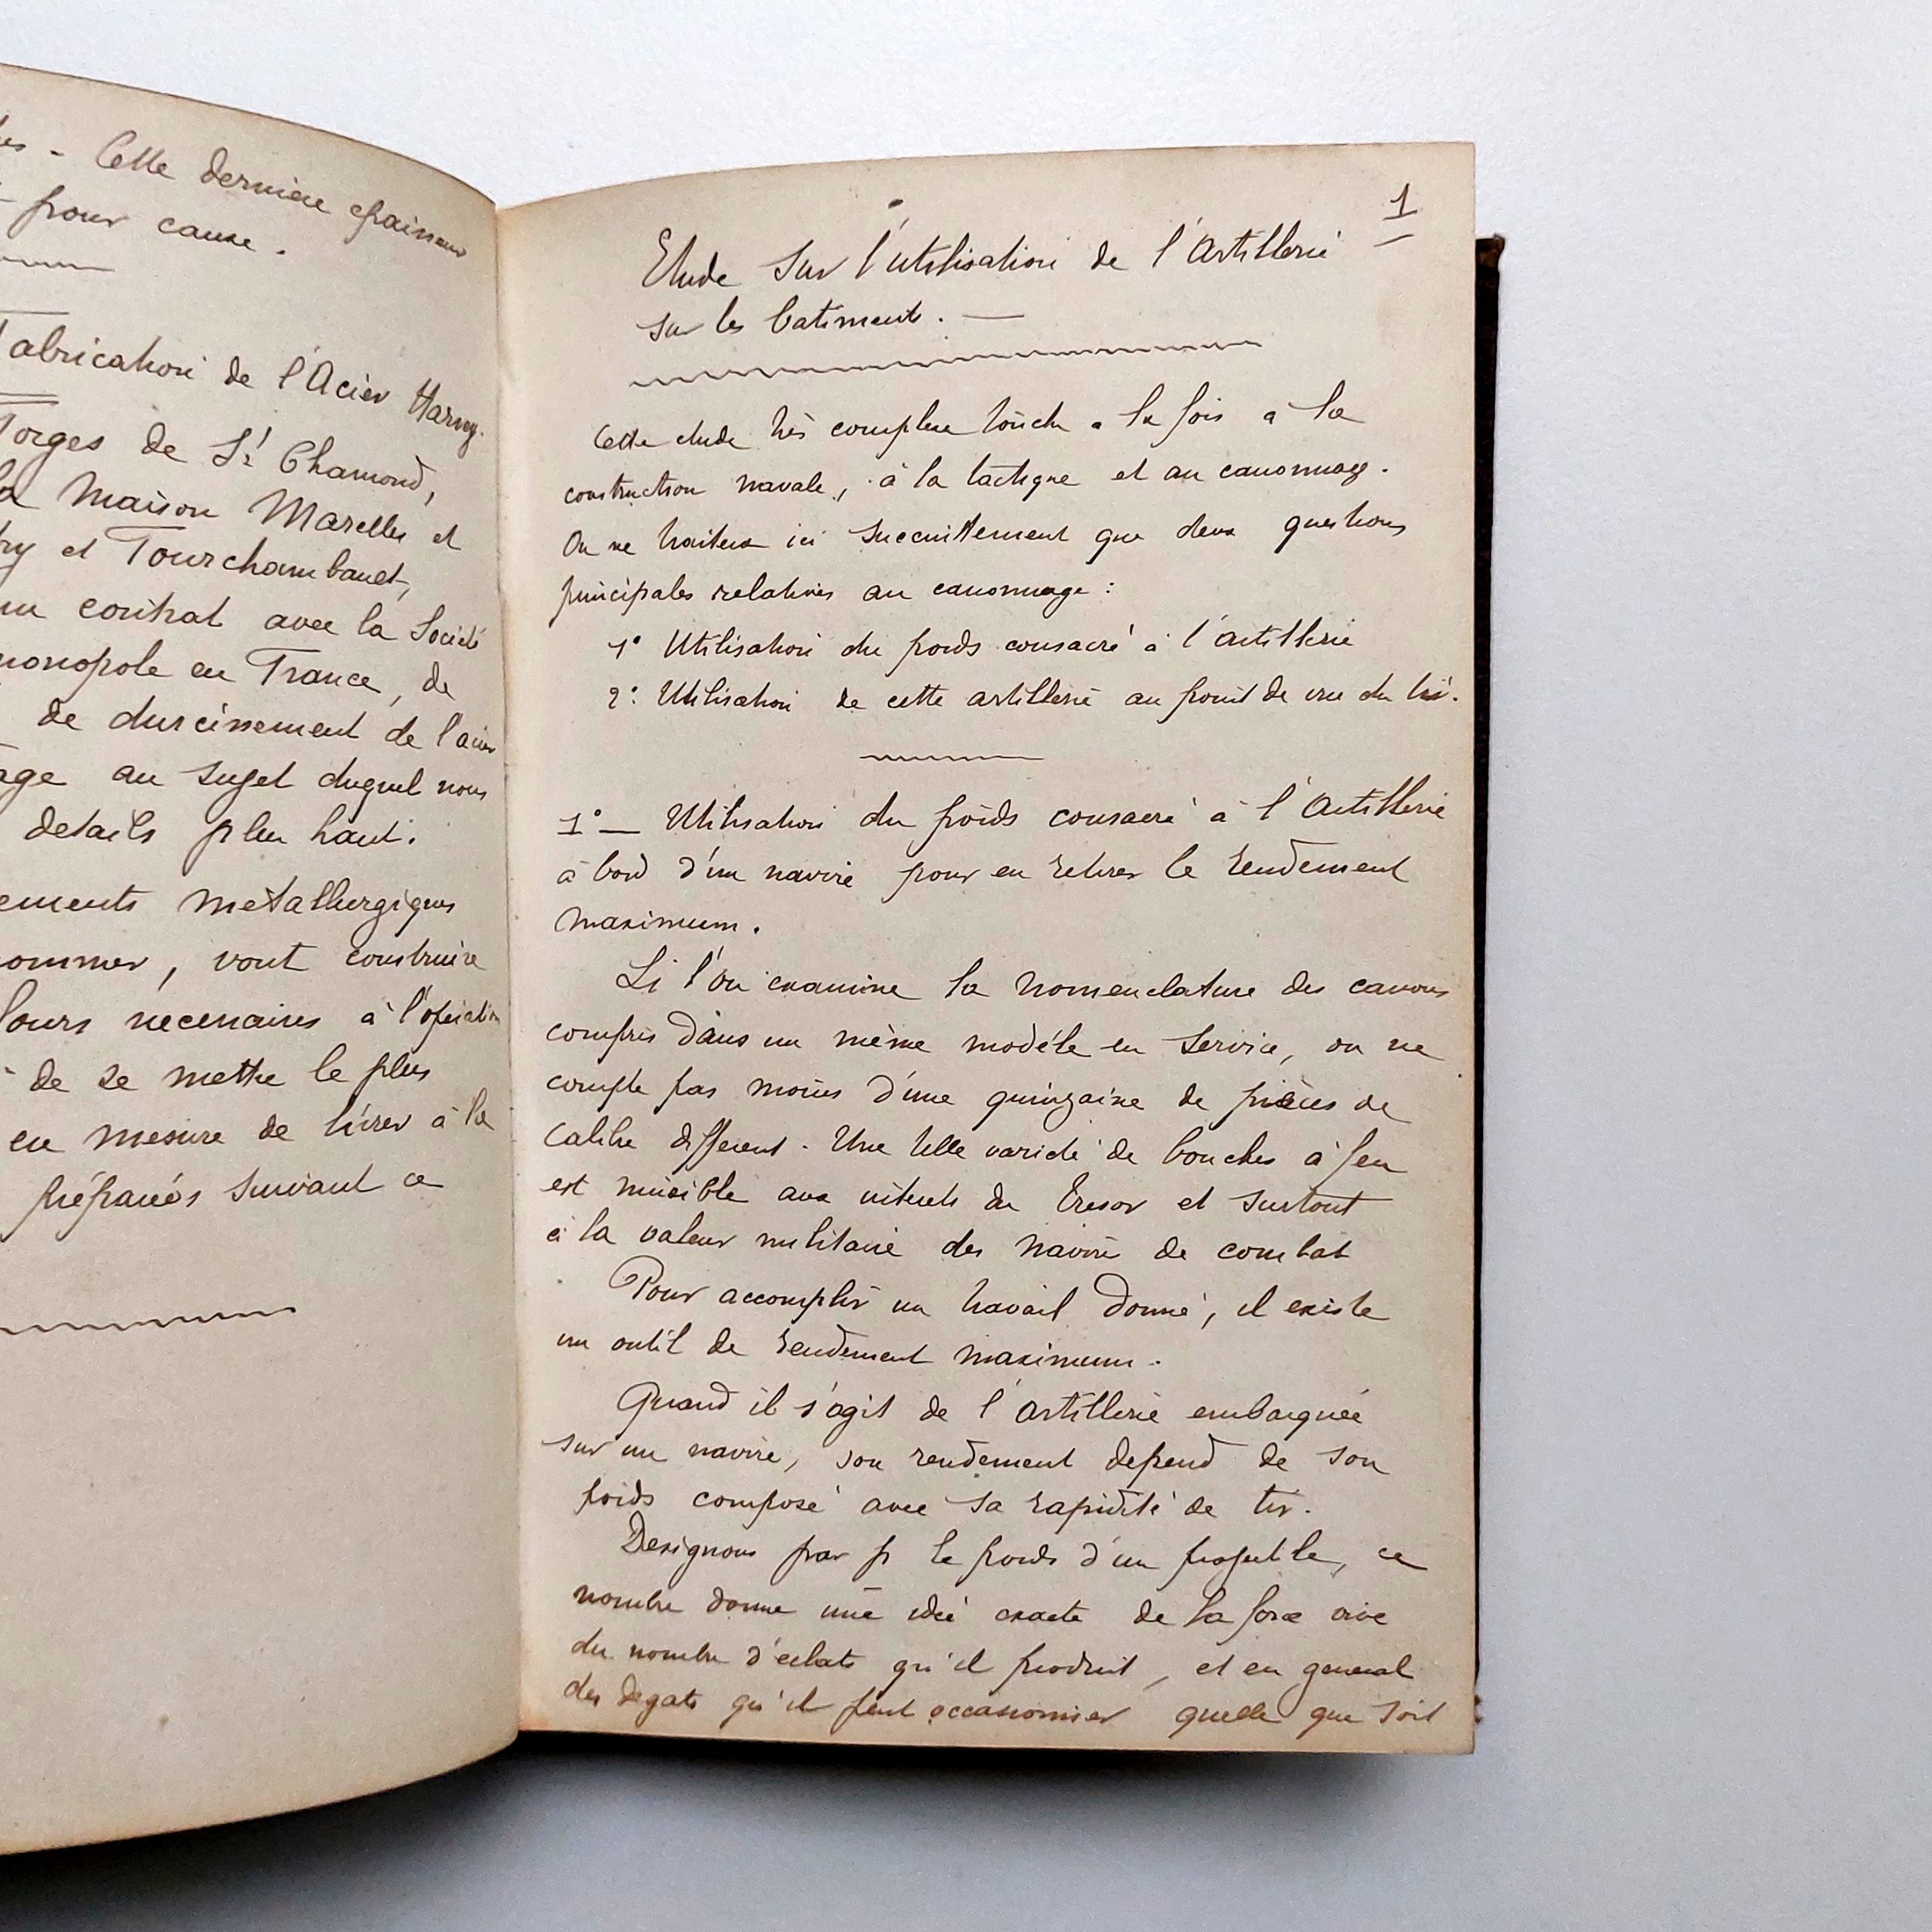 - Cette dernière epaisseur
pour cause.
Fabrication de l'Acier Harvey.
Forges de St Chamond,
la Maison Marelles et
et Fourchambauet,
un contrat avec la Société
monopole en France, de
de durcissement de l'acier
au sujet duquel nous
details plus haut.
ements metallurgiques
nommer, vont construire
fours necessaires à l'opération
de se mettre le plus
en mesure de livrer à la
préparés suivant ce
1
Etude sur l'utilisation de l'Artillerie
sur les batiments. —
Cette etude très complexe touche à la fois à la
construction navale, à la tactique et au canonnage.
On ne traitera ici succintement que deux questions
principales relatives au canonnage :
1° Utilisation du poids consacré à l'artillerie
2° Utilisation de cette artillerie au point de vue du tir.
1° — Utilisation du poids consacré à l'Artillerie
à bord d'un navire pour en retirer le rendement
maximum.
Si l'on examine la nomenclature des canons
compris dans un même modèle en service, on ne
compte pas moins d'une quinzaine de pièces de
calibre different. Une telle varieté de bouches à feu
est nuisible aux intérets du Tresor et surtout
à la valeur militaire des navires de combat
Pour accomplir un travail donné, il existe
un outil de rendement maximum.
Quand il s'agit de l'artillerie embarquée
sur un navire, son rendement depend de son
poids composé avec sa rapidité de tir.
Designons par p le poids d'un projectile, ce
nombre donne une idée exacte de la force vive
du nombre d'eclats qu'il produit, et en general
des degats qu'il peut occasionner quelle que soit